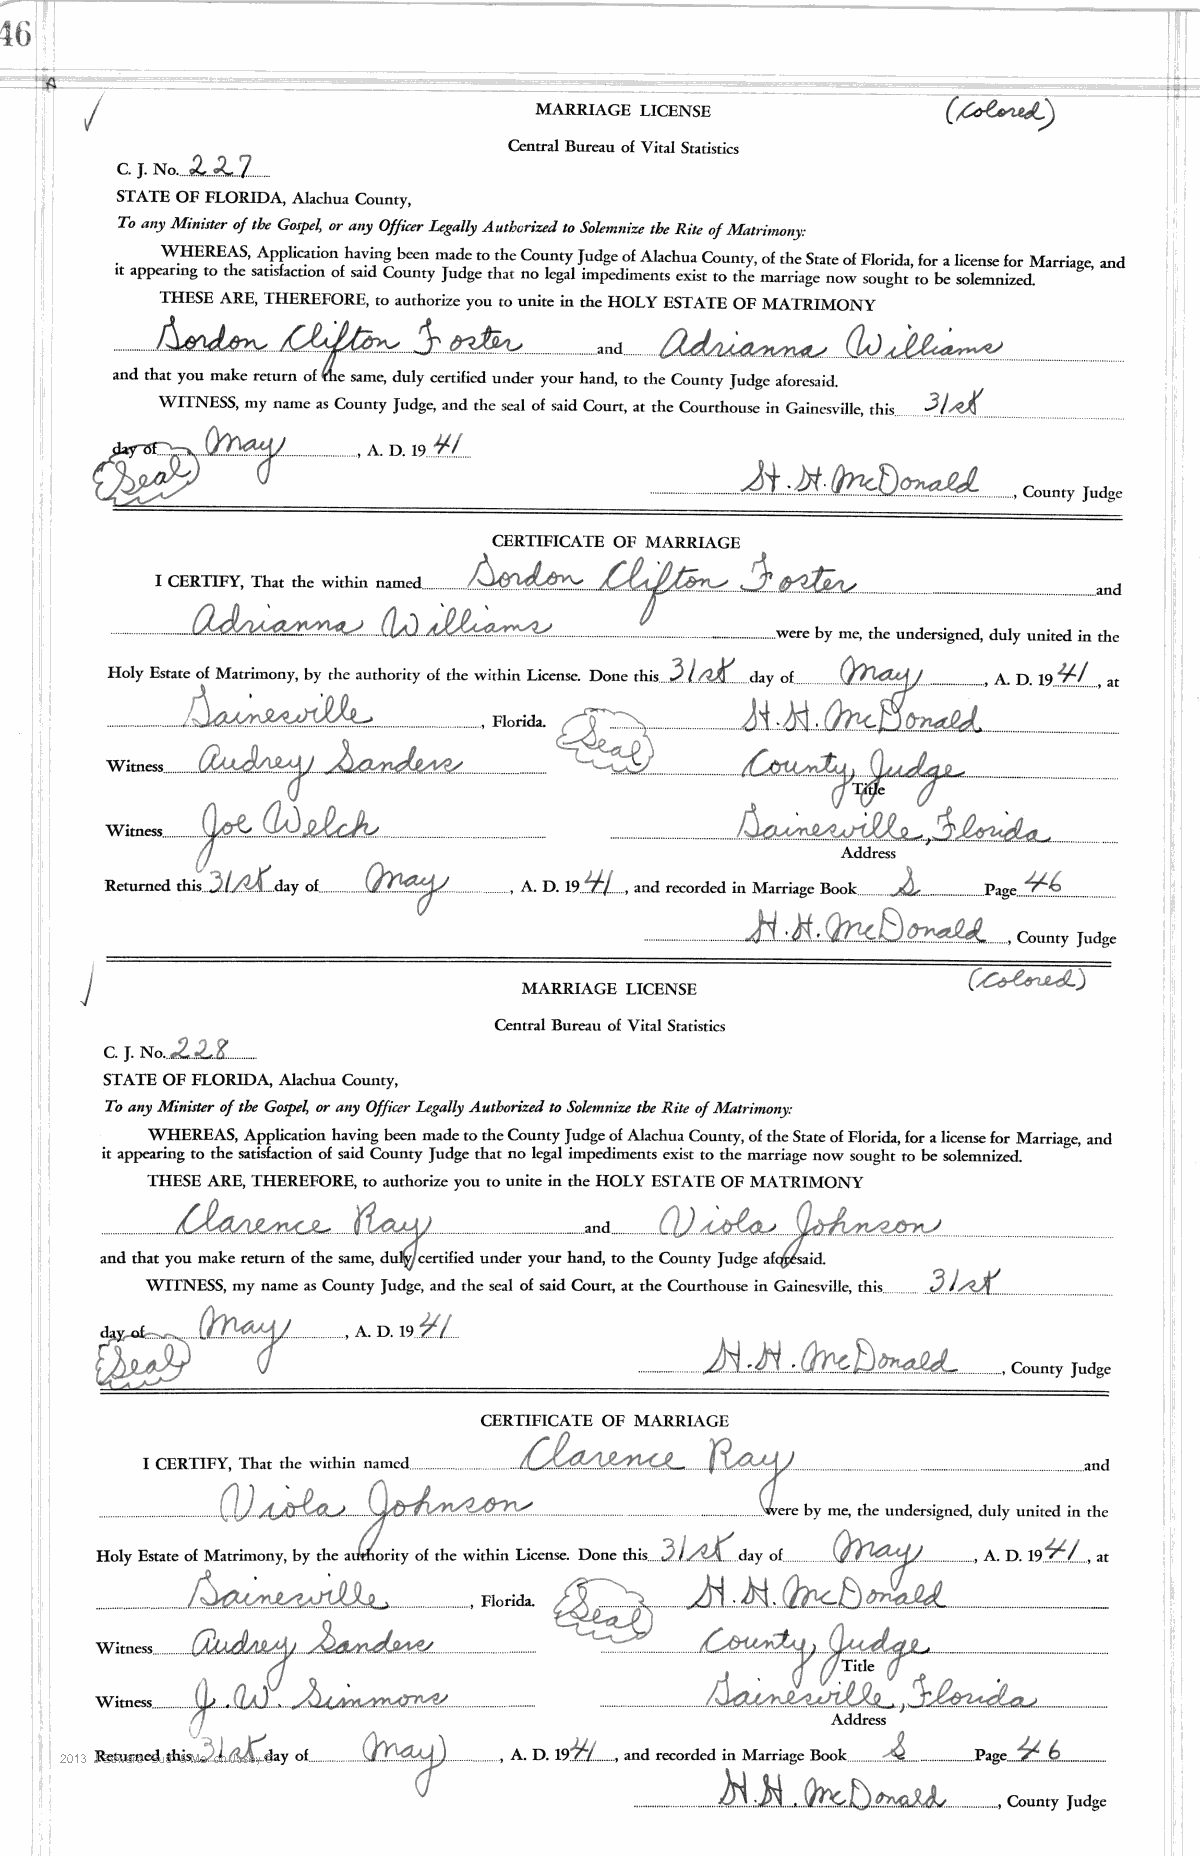 46
MARRIAGE LICENSE (Colored)
Central Bureau of Vital Statistics
C. J. No. 227
STATE OF FLORIDA, Alachua County,
To any Minister of the Gospel, or any Officer Legally Authorized to Solemnize the Rite of Matrimony:
WHEREAS, Application having been made to the County Judge of Alachua County, of the State of Florida, for a license for Marriage, and
it appearing to the satisfaction of said County Judge that no legal impediments exist to the marriage now sought to be solemnized.
THESE ARE, THEREFORE, to authorize you to unite in the HOLY ESTATE OF MATRIMONY
Gordon Clifton Foster and Adrianna Williams
and that you make return of the same, duly certified under your hand, to the County Judge aforesaid.
WITNESS, my name as County Judge, and the seal of said Court, at the Courthouse in Gainesville, this 31st
day of May, A. D. 1941
(Seal) H. H. McDonald, County Judge
CERTIFICATE OF MARRIAGE
I CERTIFY, That the within named Gordon Clifton Foster and
Adrianna Williams were by me, the undersigned, duly united in the
Holy Estate of Matrimony, by the authority of the within License. Done this 31st day of May, A. D. 1941, at
Gainesville, Florida. (Seal) H. H. McDonald
Witness Audrey Sanders County Judge
Title
Witness Joe Welch Gainesville, Florida
Address
Returned this 31st day of May, A. D. 1941, and recorded in Marriage Book S Page 46
H. H. McDonald, County Judge
MARRIAGE LICENSE (Colored)
Central Bureau of Vital Statistics
C. J. No. 228
STATE OF FLORIDA, Alachua County,
To any Minister of the Gospel, or any Officer Legally Authorized to Solemnize the Rite of Matrimony:
WHEREAS, Application having been made to the County Judge of Alachua County, of the State of Florida, for a license for Marriage, and
it appearing to the satisfaction of said County Judge that no legal impediments exist to the marriage now sought to be solemnized.
THESE ARE, THEREFORE, to authorize you to unite in the HOLY ESTATE OF MATRIMONY
Clarence Ray and Viola Johnson
and that you make return of the same, duly certified under your hand, to the County Judge aforesaid.
WITNESS, my name as County Judge, and the seal of said Court, at the Courthouse in Gainesville, this 31st
day of May, A. D. 1941
(Seal) H. H. McDonald, County Judge
CERTIFICATE OF MARRIAGE
I CERTIFY, That the within named Clarence Ray and
Viola Johnson were by me, the undersigned, duly united in the
Holy Estate of Matrimony, by the authority of the within License. Done this 31st day of May, A. D. 1941, at
Gainesville, Florida. (Seal) H. H. McDonald
Witness Audrey Sanders County Judge
Title
Witness J. W. Simmons Gainesville, Florida
Address
2013 Returned this 31st day of May, A. D. 1941, and recorded in Marriage Book S Page 46
H. H. McDonald, County Judge